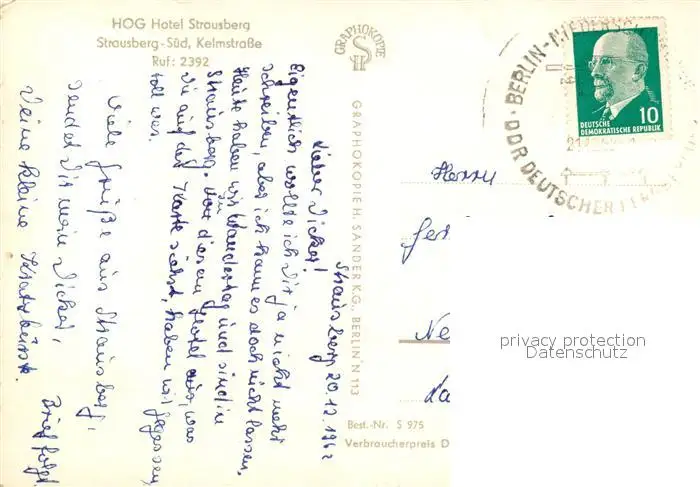 HOG Hotel Strausberg
Strausberg-Süd, Kelmstraße
Ruf: 2392
Strausberg 20.12.1962
Lieber Dicker!
Eigentlich wollte ich Dir ja nicht mehr
schreiben, aber ich kann es doch nicht lassen.
Heute haben wir Wandertag und sind in
Strausberg. Von diesem Hotel aus, was
Du auf der Karte siehst, haben wir gegessen,
toll was.
Viele Grüße aus Strausberg,
sendet Dir mein Dicker,
Deine kleine Kratzbürste.
Brief folgt
GRAPHOKOPIE
GRAPHOKOPIE H. SANDER K.G., BERLIN N 113
Best.-Nr. S 975
Verbraucherpreis D
BERLIN-NIEDERSCH
DDR DEUTSCHER FERNS
DEUTSCHE
DEMOKRATISCHE REPUBLIK
10
Herrn
Ger
Ne
privacy protection
Datenschutz